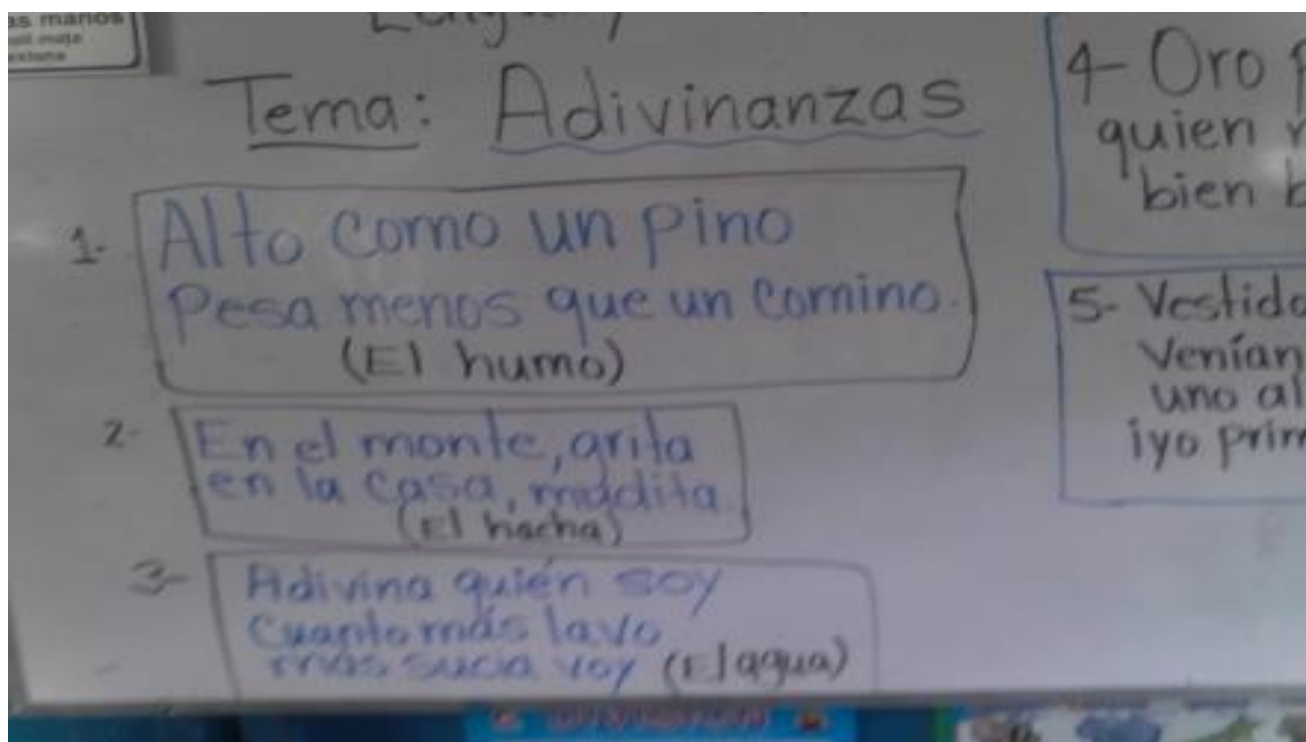 as manos
Tema: Adivinanzas
1- Alto como un pino
Pesa menos que un comino.
(El humo)
2- En el monte, grita
en la casa, mudita
(El hacha)
3- Adivina quién soy
Cuanto más lavo
más sucia voy (El agua)
4- Oro
quien
bien
5- Vestido
Venían
uno al
¡yo prim